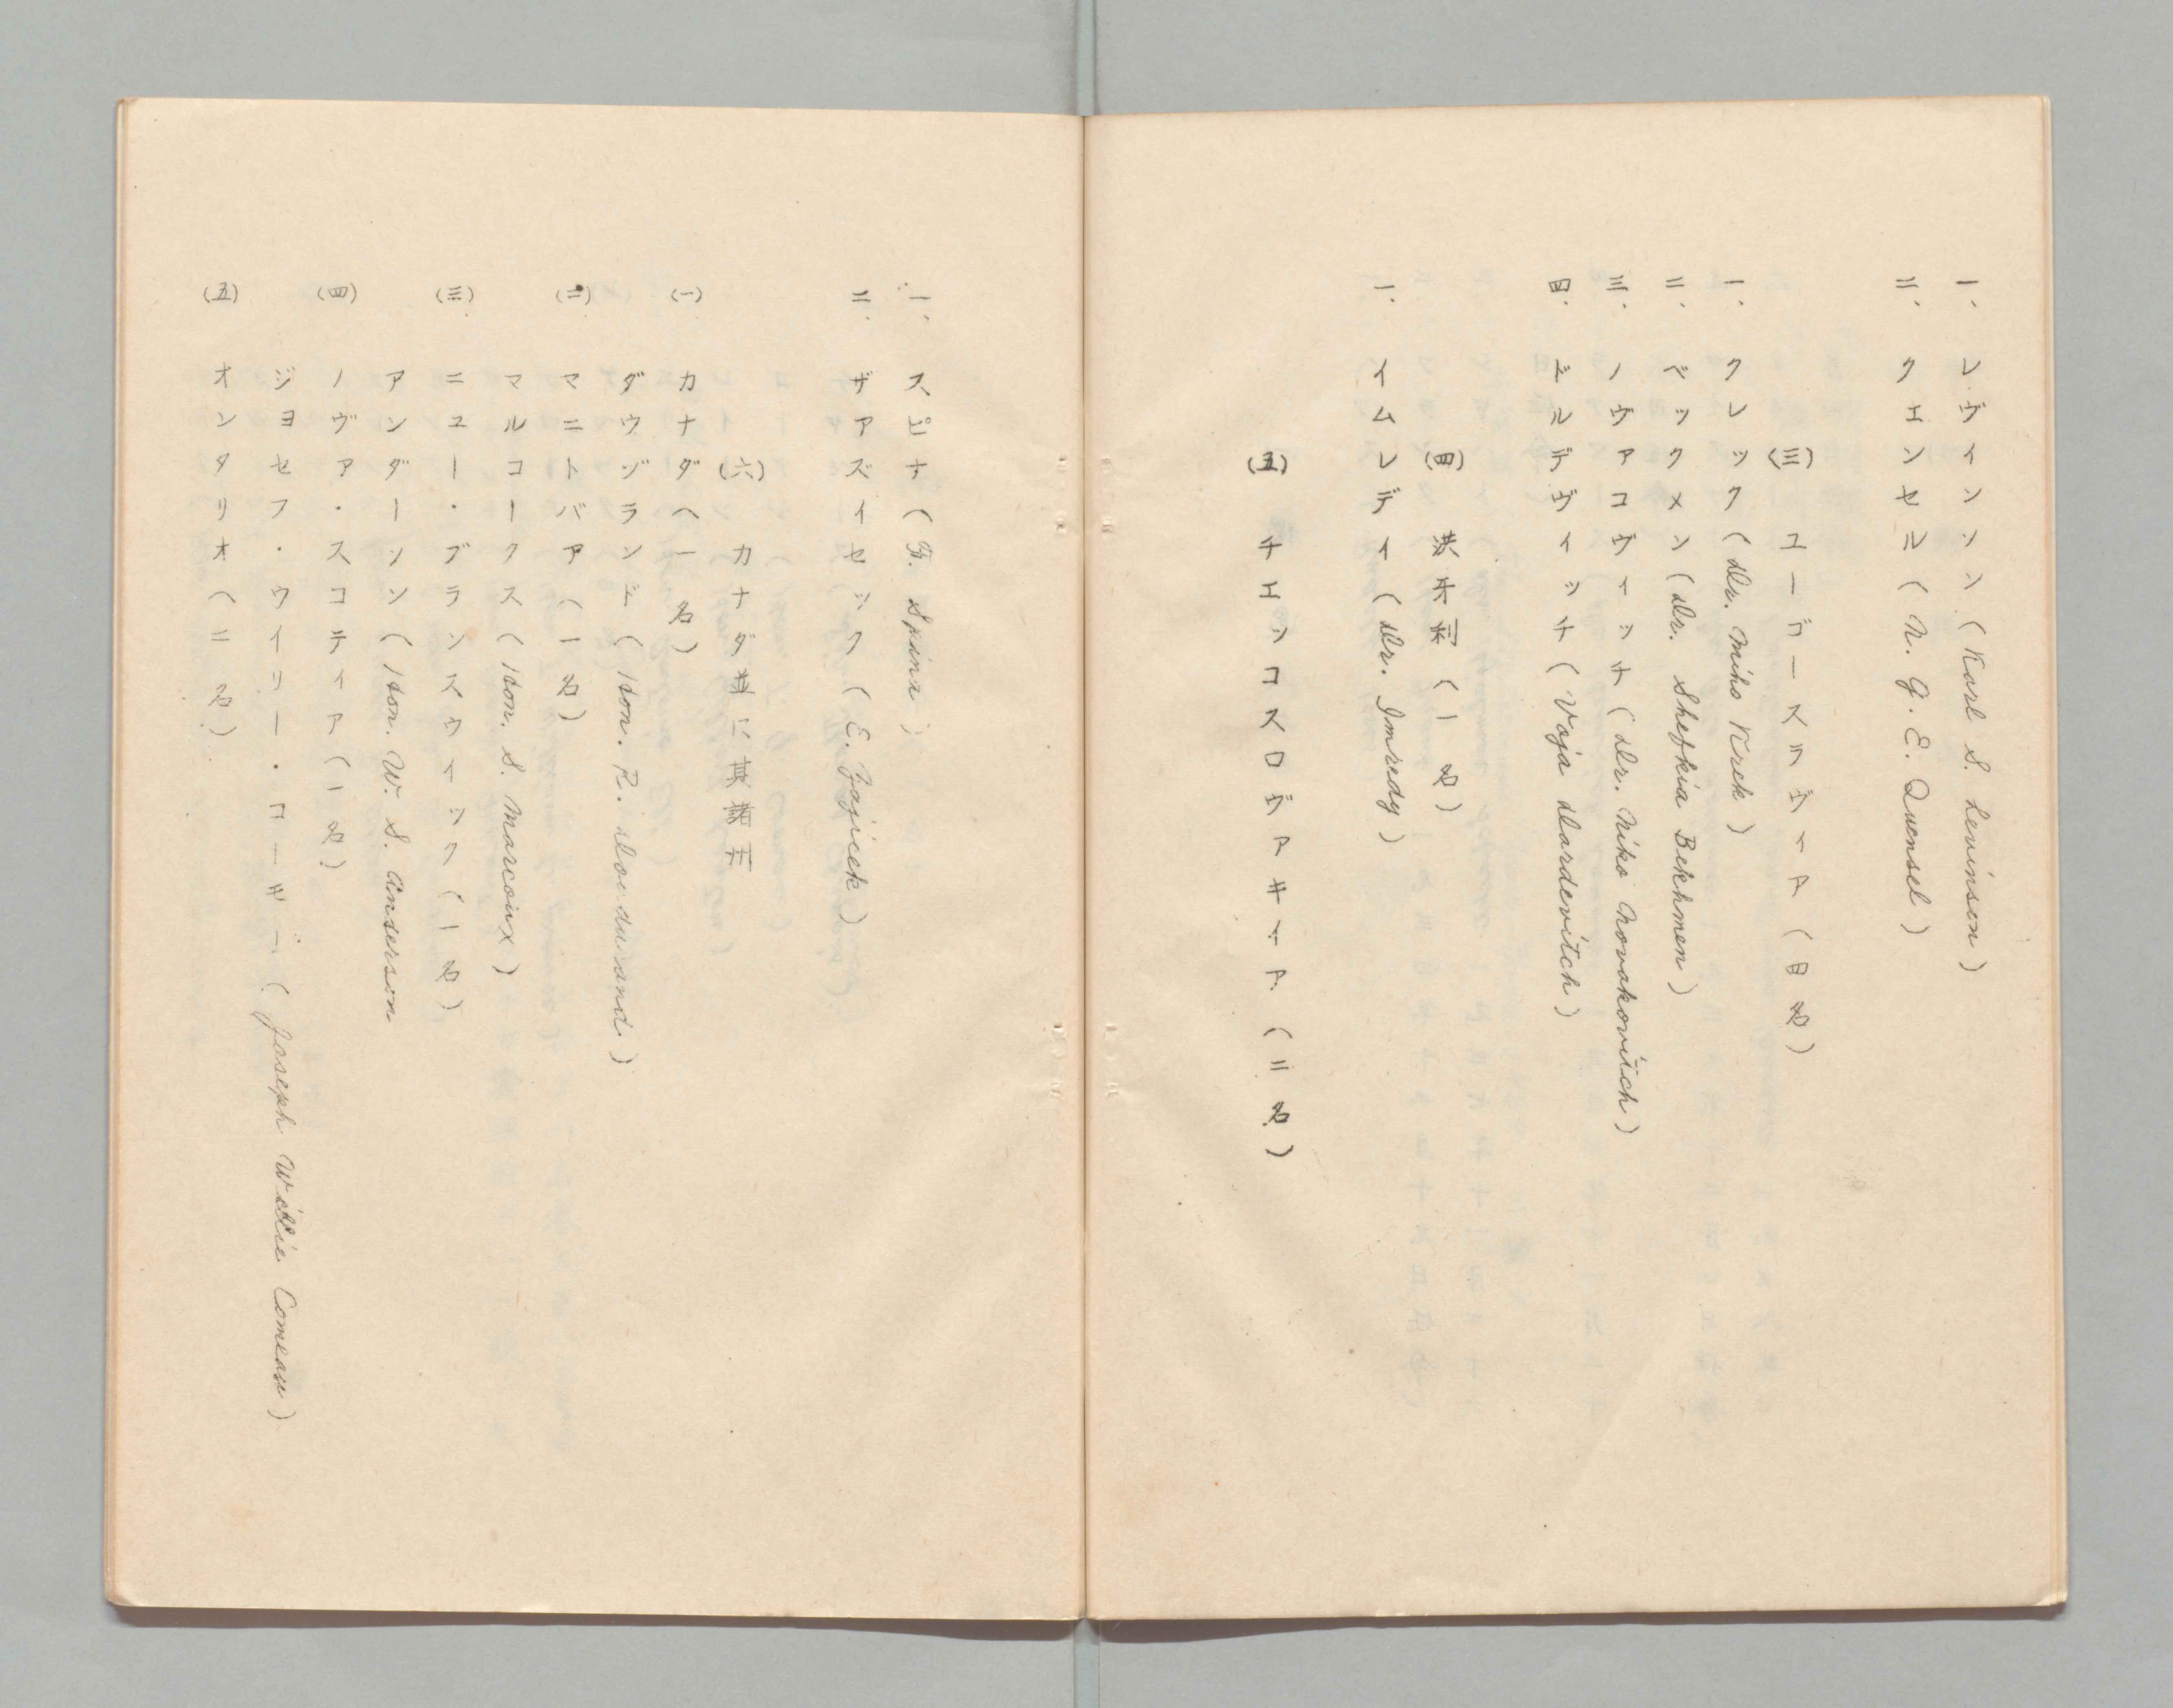 一、レヴインソン（Karl S. Levinson）
二、クエンセル（N. G. E. Quensel）
（三）ユーゴースラヴィア（四名）
一、クレック（Dr. Miho Krek）
二、ベックメン（Dr. Shefkia Bekhmen）
三、ノヴアコヴィッチ（Dr. Niko Novakovitch）
四、ドルデヴィッチ（Voja Dardevitch）
（四）洪牙利（一名）
一、イムレディ（Dr. Imredy）
（五）チエッコスロヴアキィア（二名）
一、スピナ（F. Spina）
二、ザアズイセック（E. Zajicek）
（六）カナダ並に其諸州
（一）カナダ（一名）
（Hon. R.
（二）マニトバア（一名）
マルコークス（Hon. S. Marcoux）
（三）ニユー・ブランズウィック（一名）
アンダーソン（Hon. W. S. Anderson
（四）ノヴア・スコティア（一名）
ジヨセフ・ウイリー・コー（Joseph Willie Comeau）
（五）オンタリオ（二名）